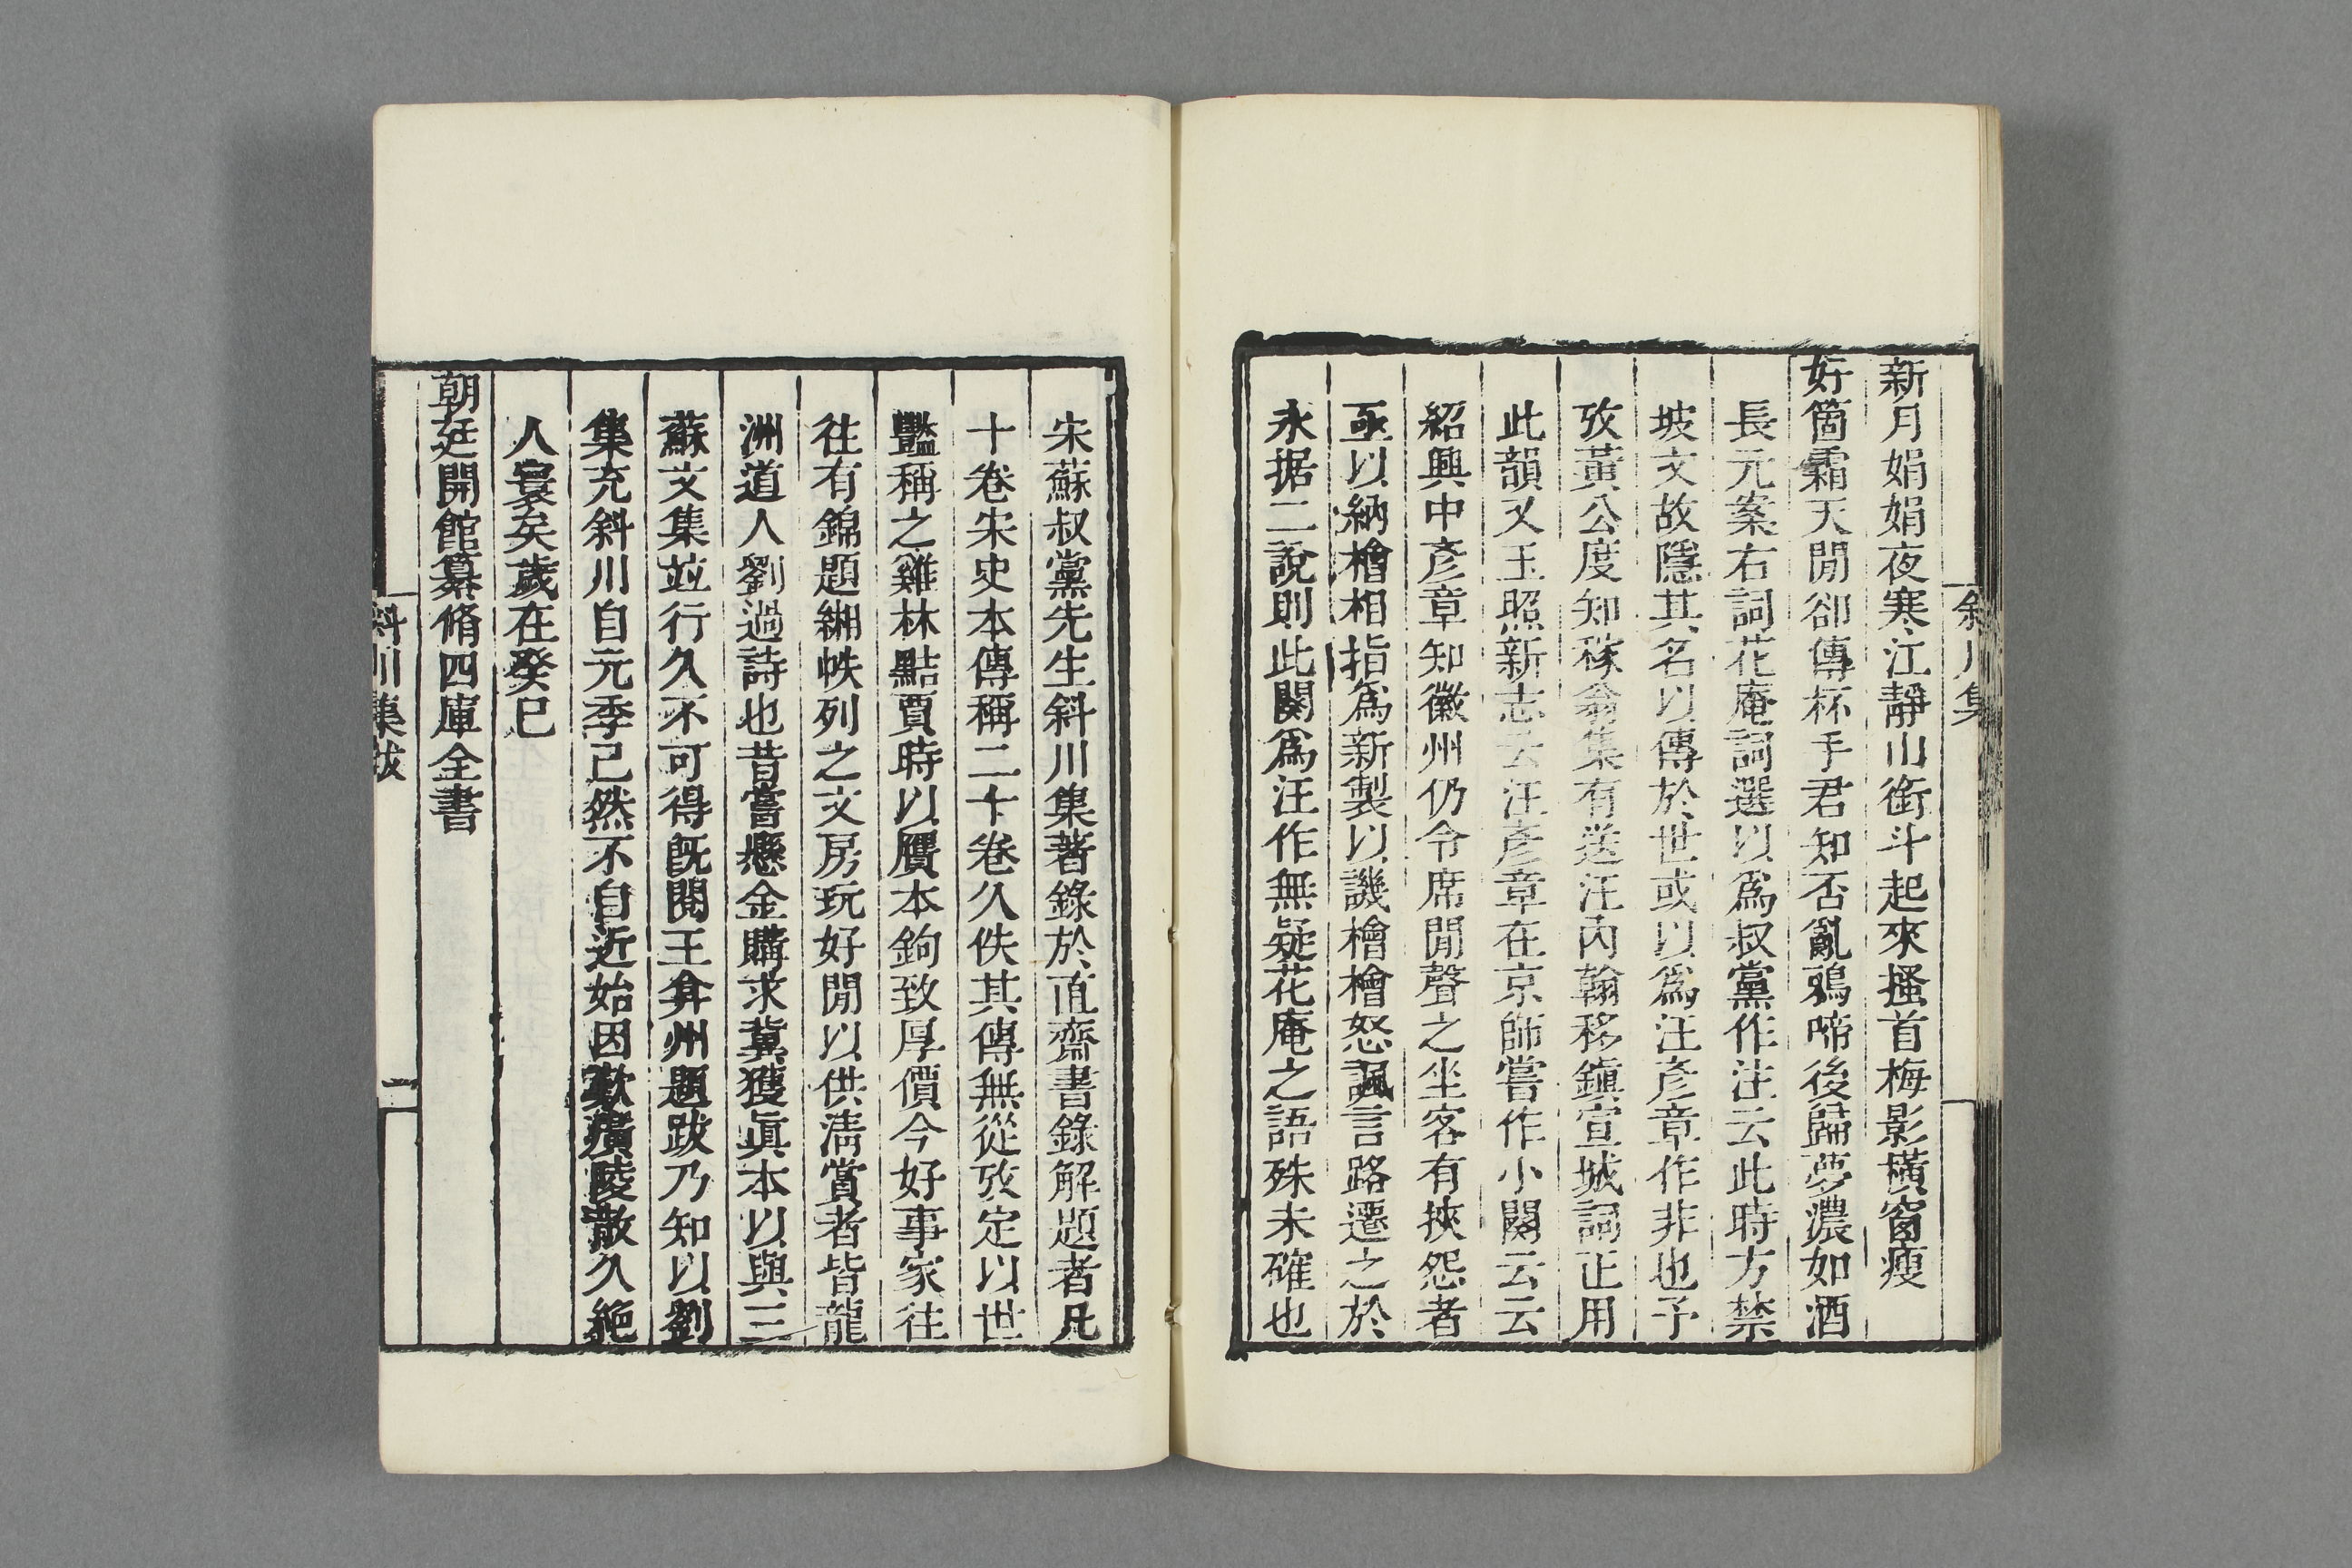 斜川集
新月娟娟夜寒江靜山銜斗起來搔首梅影橫窗瘦
好箇霜天閒卻傳杯手君知否亂鴉啼後歸夢濃如酒
長元案右詞花庵詞選以爲叔黨作注云此時方禁
坡文故隱其名以傳於世或以爲汪彥章作非也予
攷黃公度知稼翁集有送汪內翰移鎮宣城詞正用
此韻又王照新志云汪彥章在京師嘗作小闋云云
紹興中彥章知徽州仍令席閒聲之坐客有挾怨者
亟以納檜相指爲新製以譏檜檜怒諷言路遷之於
永据二說則此闋爲汪作無疑花庵之語殊未確也
宋蘇叔黨先生斜川集著錄於直齋書錄解題者凡
十卷宋史本傳稱二十卷久佚其傳無從攷定以世
豔稱之雞林黠賈時以贋本鉤致厚價今好事家往
往有錦題緗帙列之文房玩好閒以供淸賞者皆龍
洲道人劉過詩也昔嘗懸金購求冀獲眞本以與三
蘇文集竝行久不可得旣閱王弇州題跋乃知以劉
集充斜川自元季已然不自近始因歎廣陵散久絶
人寰矣歲在癸巳
朝廷開館纂脩四庫全書
斜川集跋
二